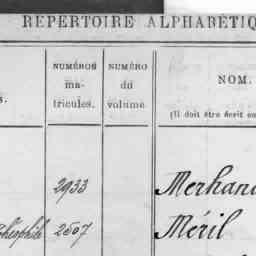 RÉPERTOIRE ALPHABÉTIQ
NUMÉROS
ma-
tricules.
NUMÉRO
du
volume.
NOM.
(Il doit être écrit en
s.
2933
Merhan
Théophile 2507 Méril